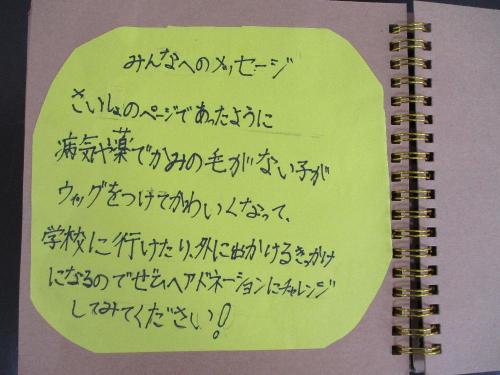 みんなへのメッセージ
さいしょのページであったように
病気や薬でかみの毛がない子が
ウィッグをつけてかわいくなって、
学校に行けたり、外に出かけるきっかけ
になるのでぜひヘアドネーションにチャレンジ
してみてください!